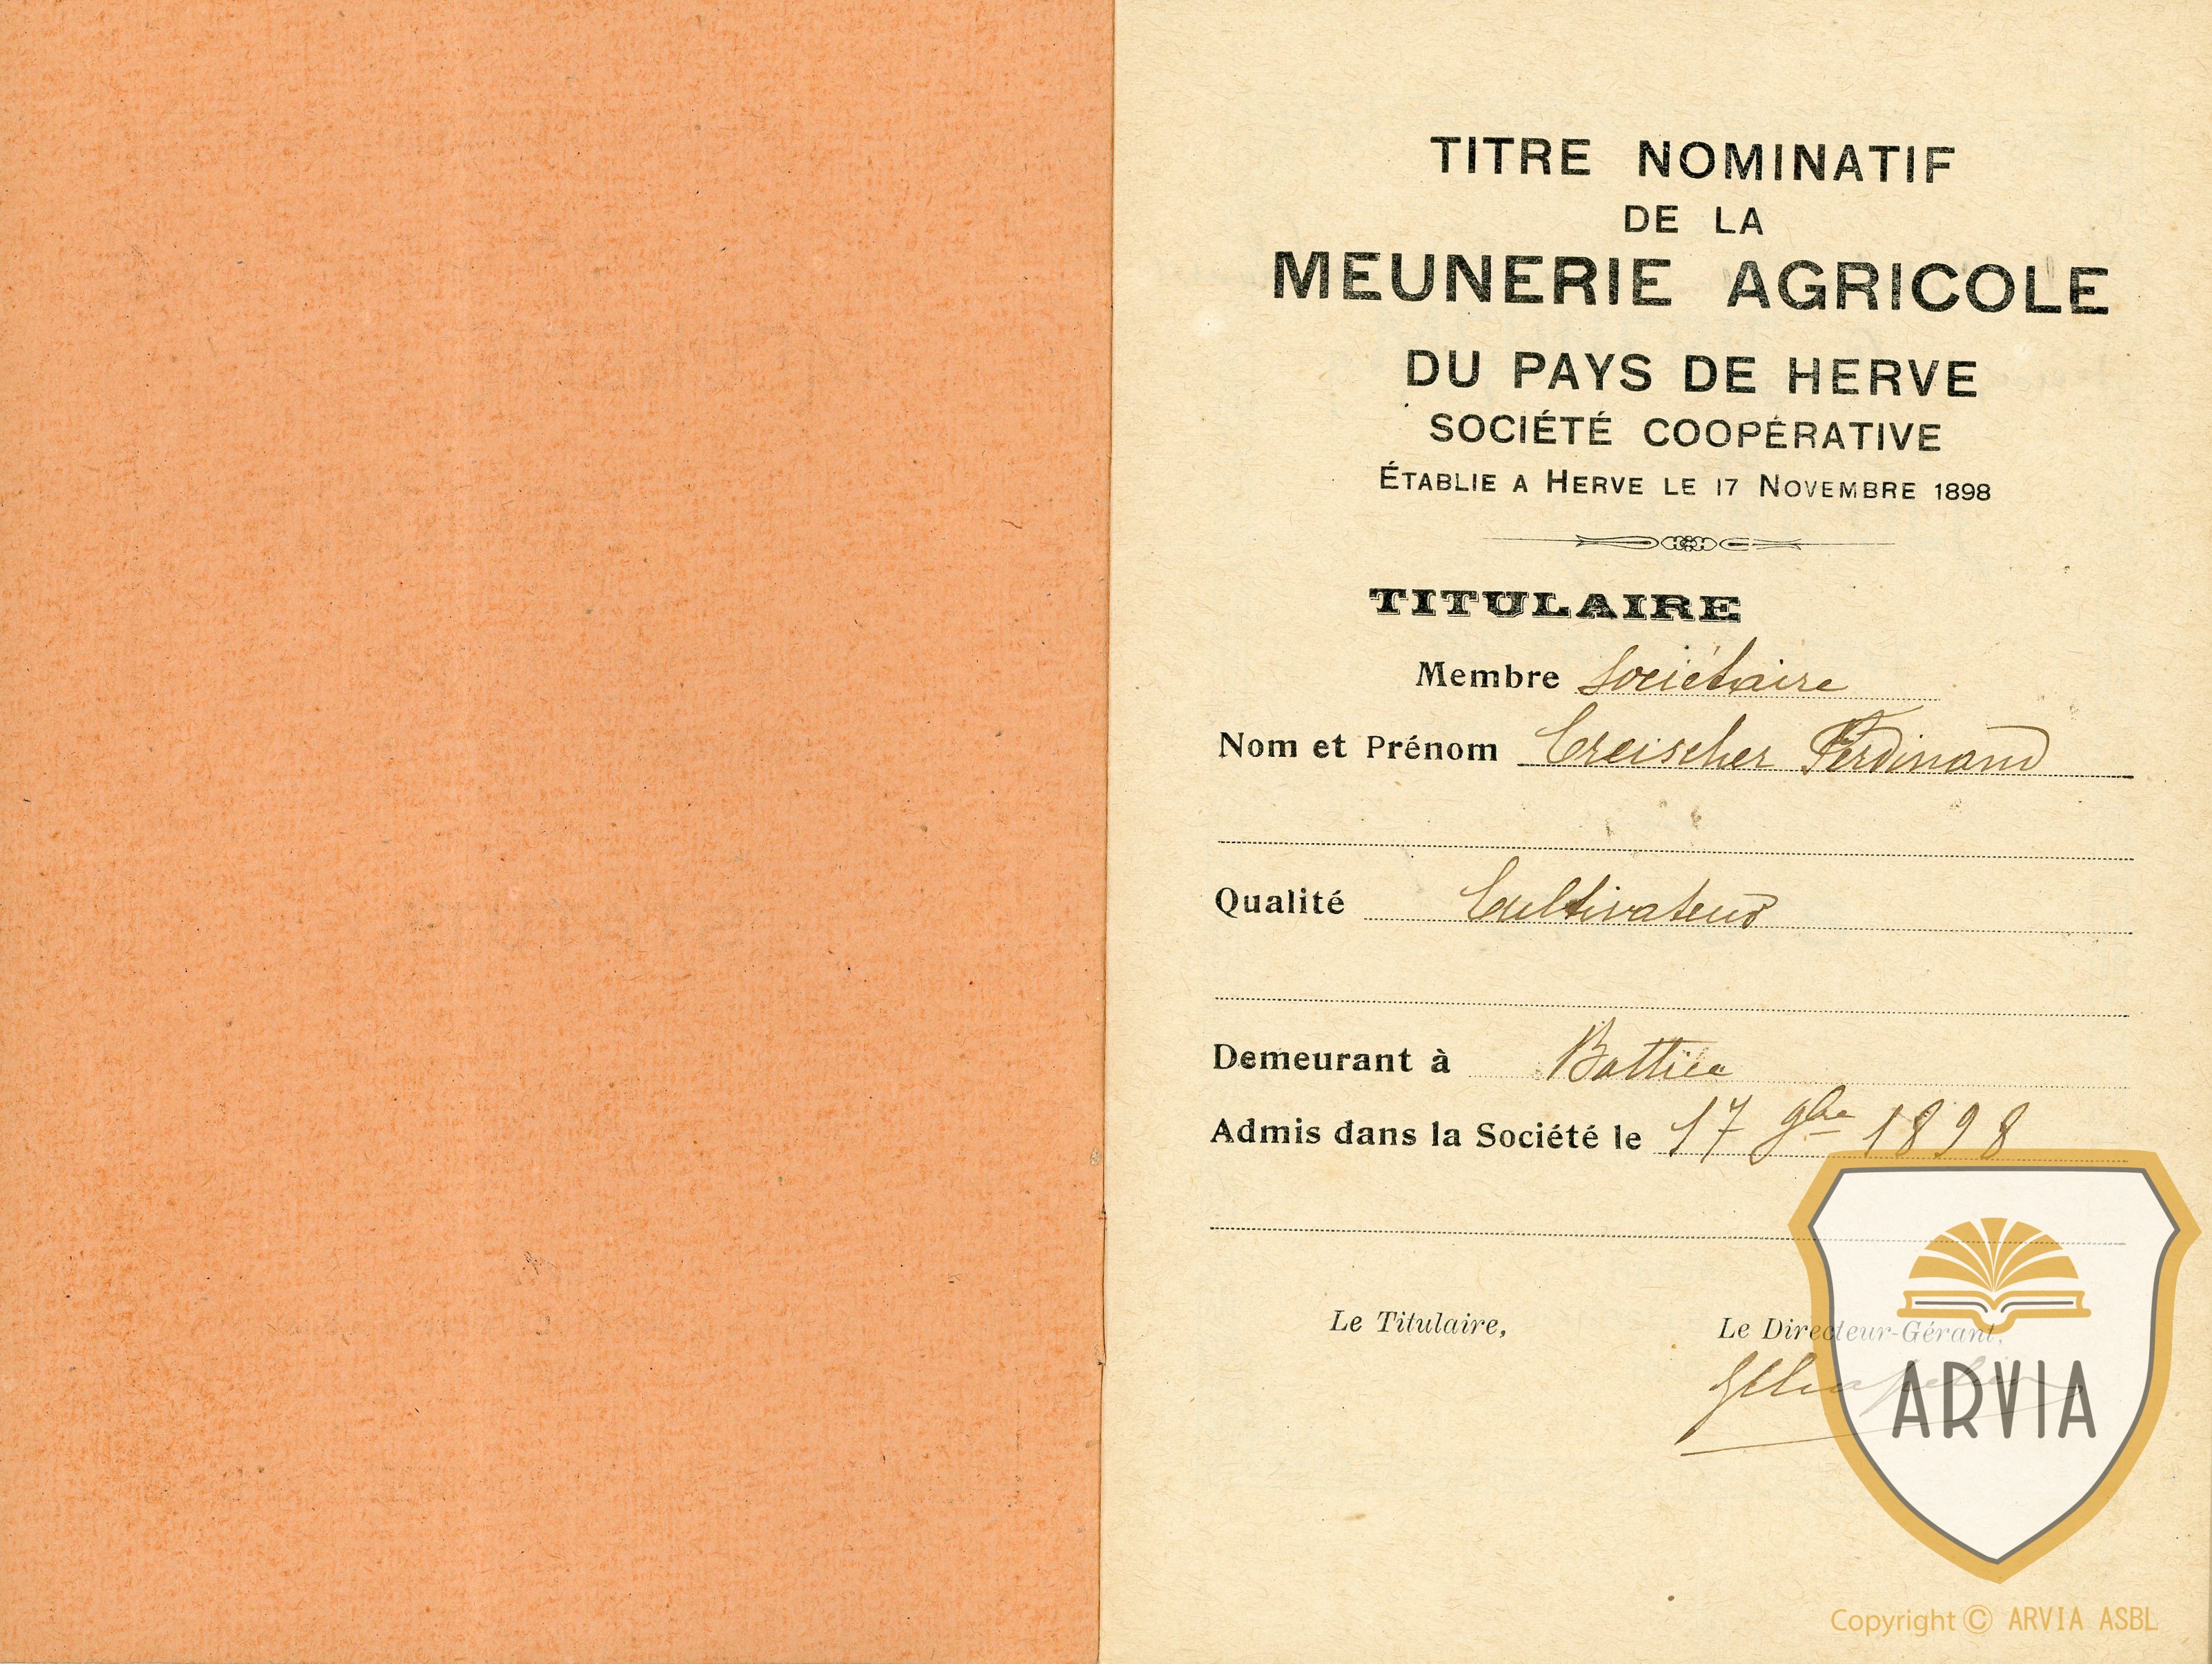 TITRE NOMINATIF
DE LA
MEUNERIE AGRICOLE
DU PAYS DE HERVE
SOCIÉTÉ COOPÉRATIVE
ÉTABLIE A HERVE LE 17 NOVEMBRE 1898
TITULAIRE
Membre Sociétaire
Nom et Prénom Creischer Ferdinand
Qualité Cultivateur
Demeurant à Battice
Admis dans la Société le 17 9bre 1898
Le Titulaire,
Le Directeur-Gérant,
ARVIA
Copyright © ARVIA ASBL